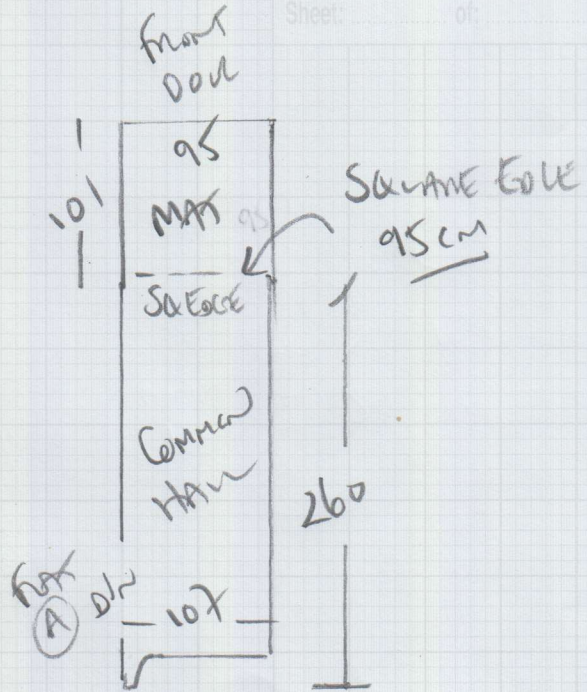 Sheet: of:
FRONT
DOOR
95
101
MAT
95
SQUARE EDGE
95 CM
SQ EDGE
COMMON
HALL
260
FLAT
A
D/W
107